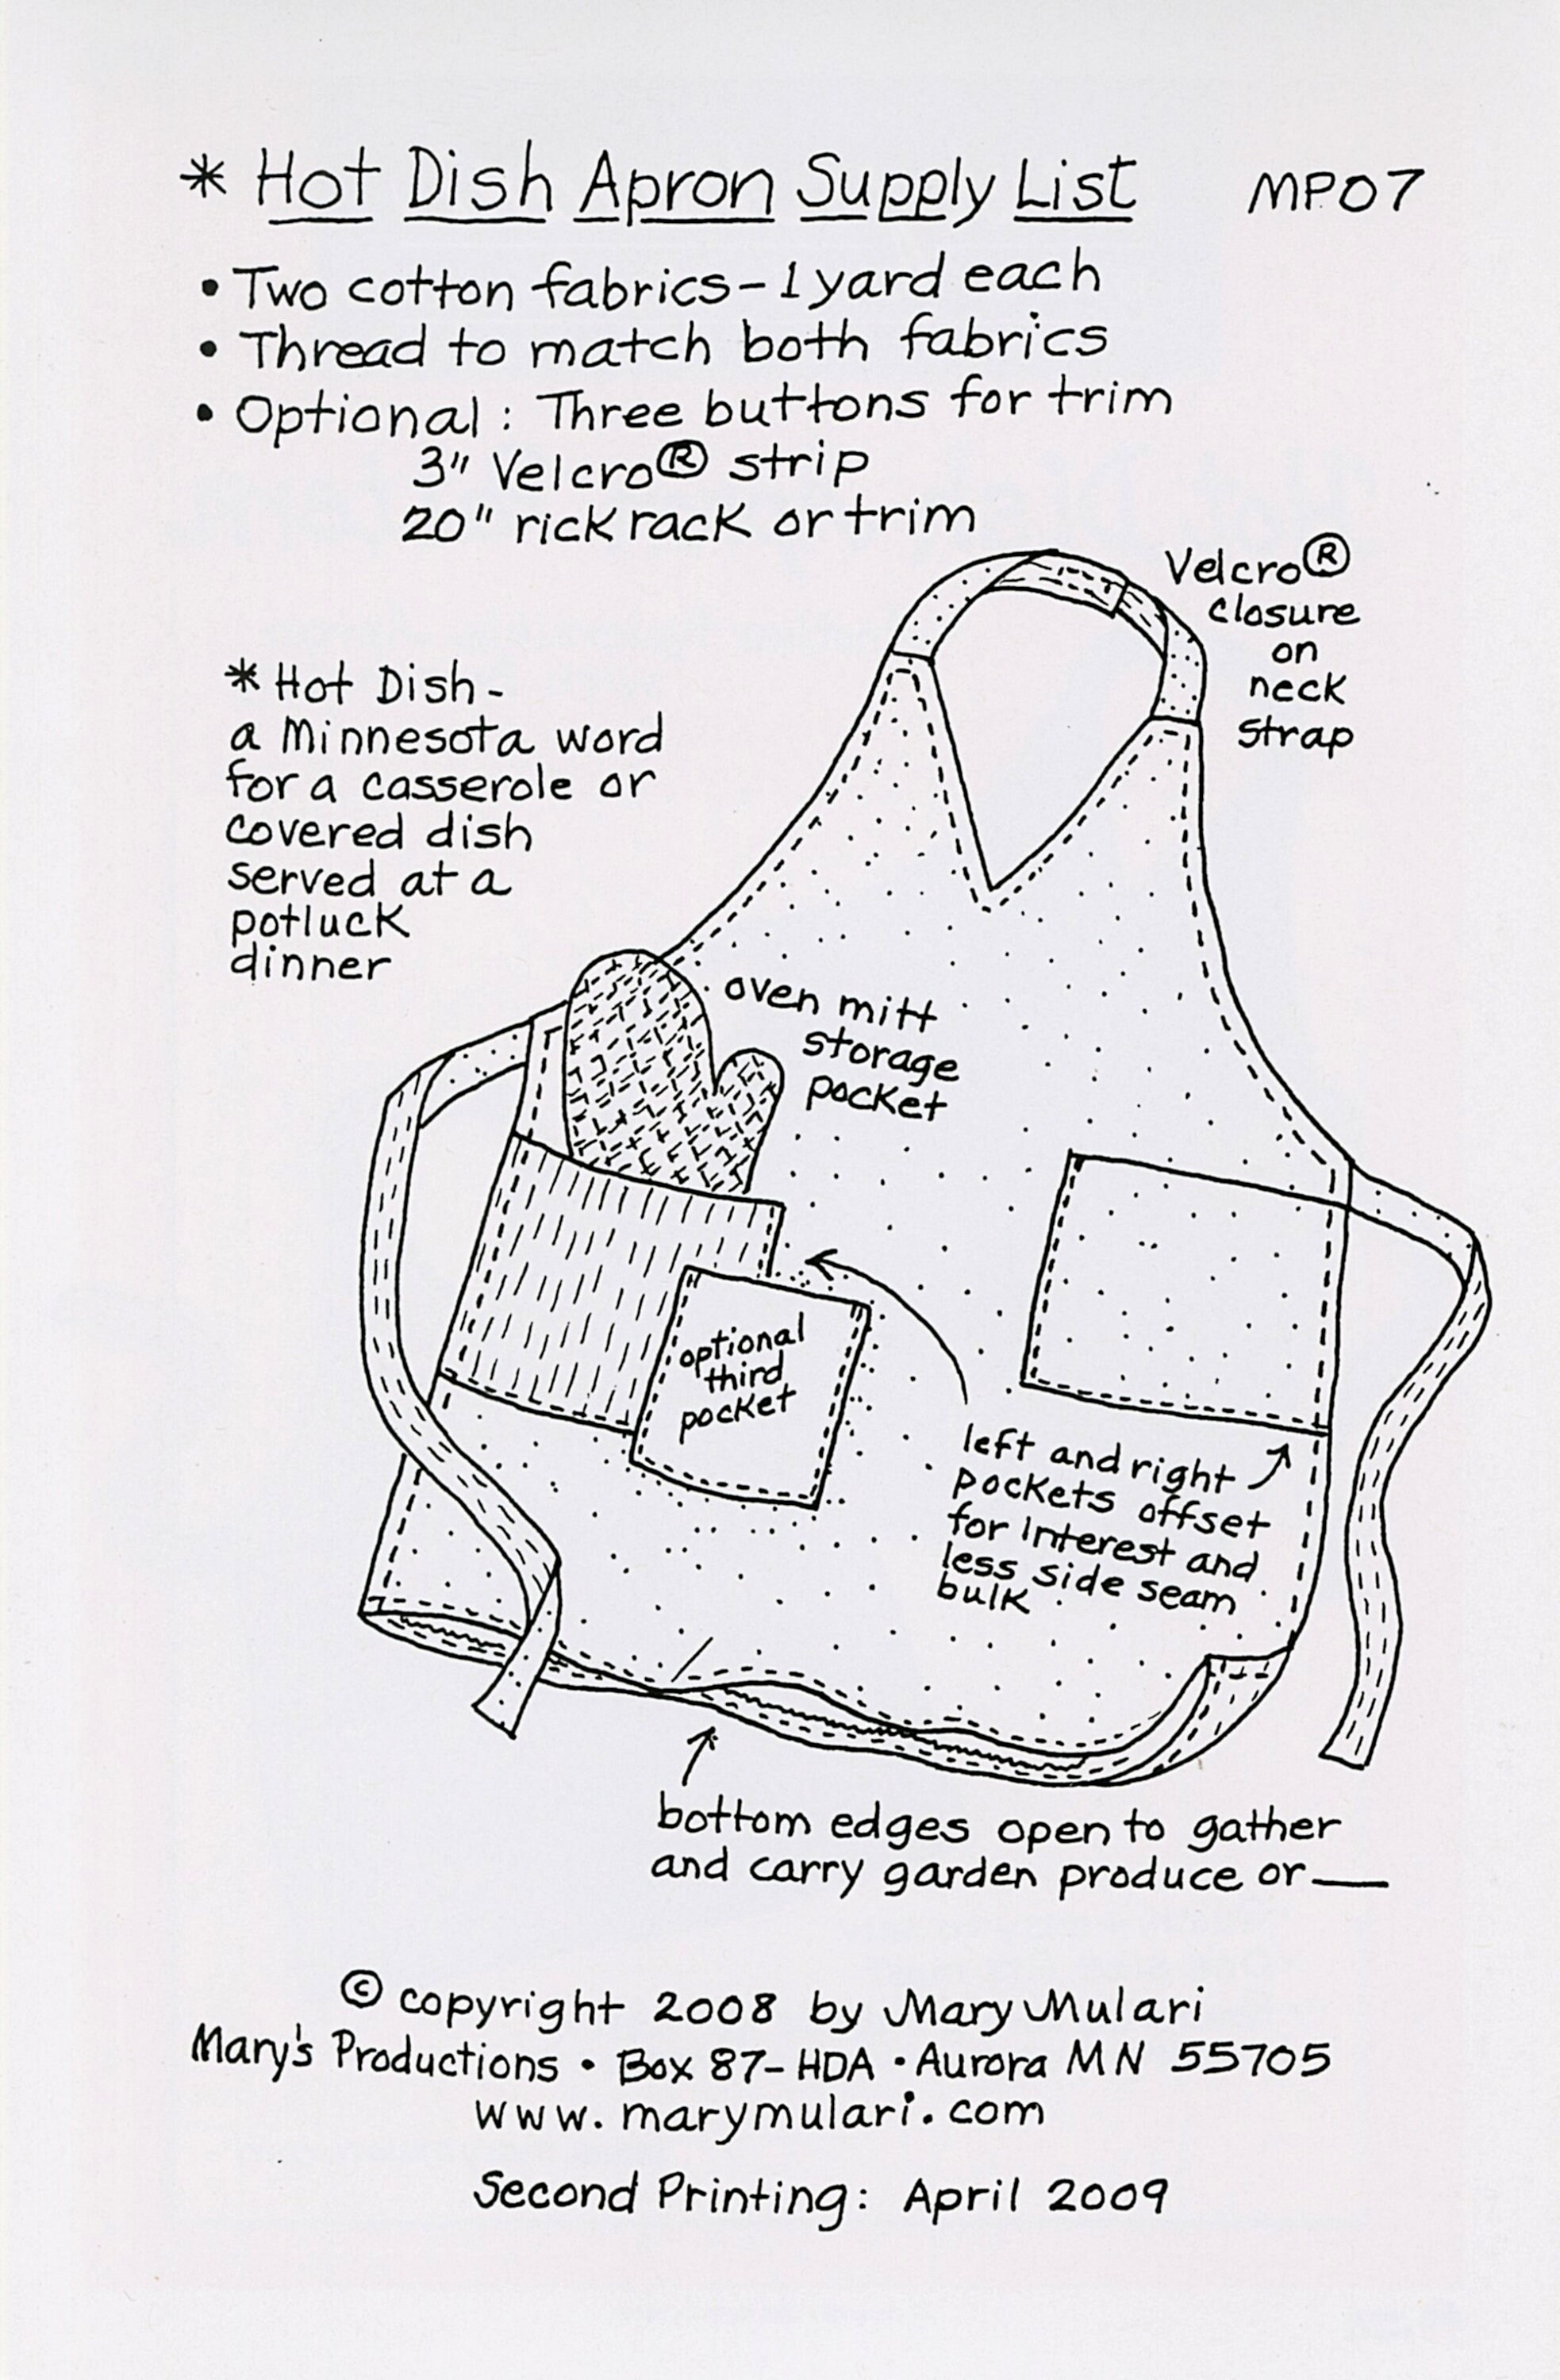 * Hot Dish Apron Supply List MP07
• Two cotton fabrics - 1 yard each
• Thread to match both fabrics
• Optional: Three buttons for trim
3" Velcro® strip
20" rick rack or trim
Velcro®
closure
on
neck
strap
* Hot Dish -
a Minnesota word
for a casserole or
covered dish
served at a
potluck
dinner
oven mitt
storage
pocket
optional
third
pocket
left and right
pockets offset
for interest and
less side seam
bulk
bottom edges open to gather
and carry garden produce or __
© copyright 2008 by Mary Mulari
Mary's Productions • Box 87-HDA • Aurora MN 55705
www.marymulari.com
Second Printing: April 2009